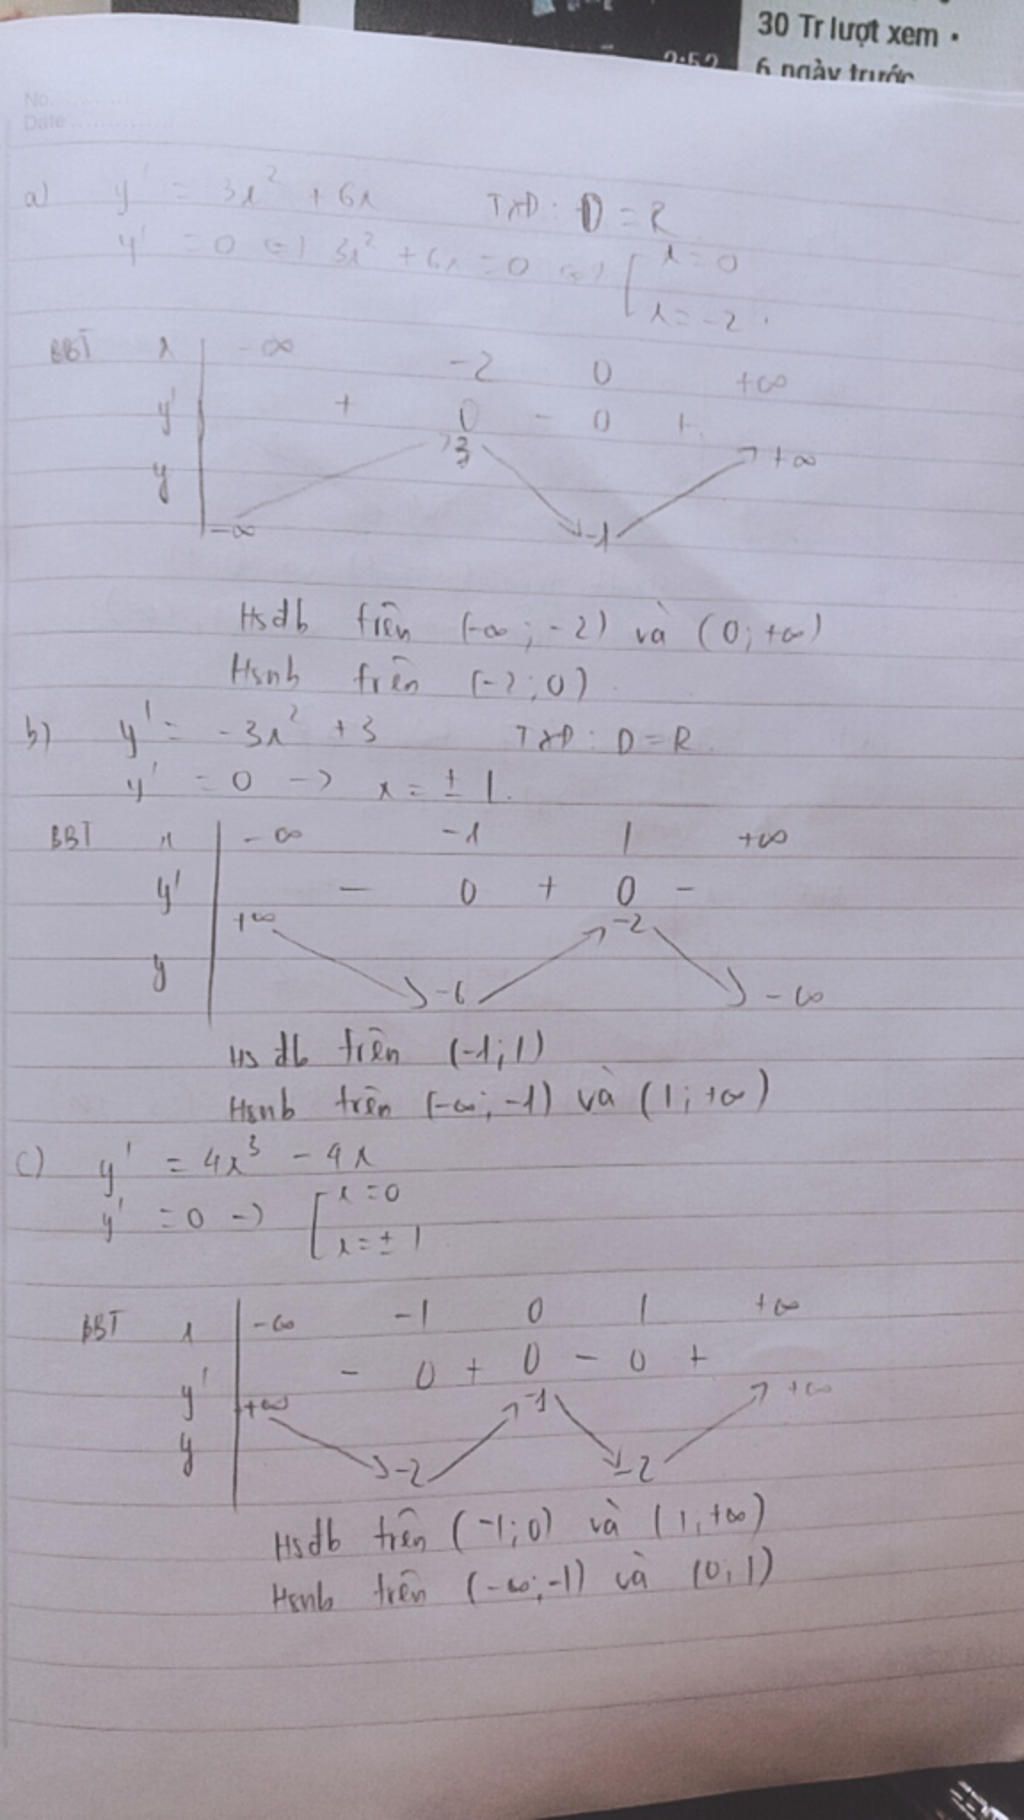 30 Tr lượt xem •
2:52
6 ngày trước
No.
Date
a) y' = 3x² + 6x TXĐ: D = R
y' = 0 <=> 3x² + 6x = 0 <=> [ x = 0
x = -2.
BBT x -∞ -2 0 +∞
y' + 0 - 0 +
y -∞ 3 -1 +∞
Hsđb trên (-∞; -2) và (0; +∞)
Hsnb trên (-2; 0).
b) y' = -3x² + 3 TXĐ: D = R.
y' = 0 -> x = ± 1.
BBT x -∞ -1 1 +∞
y' - 0 + 0 -
y +∞ -6 -2 -∞
Hs đb trên (-1; 1)
Hsnb trên (-∞; -1) và (1; +∞)
c) y' = 4x³ - 4x
y' = 0 -> [ x = 0
x = ± 1
BBT x -∞ -1 0 1 +∞
y' - 0 + 0 - 0 +
y +∞ -2 -1 -2 +∞
Hsđb trên (-1; 0) và (1; +∞)
Hsnb trên (-∞; -1) và (0; 1)